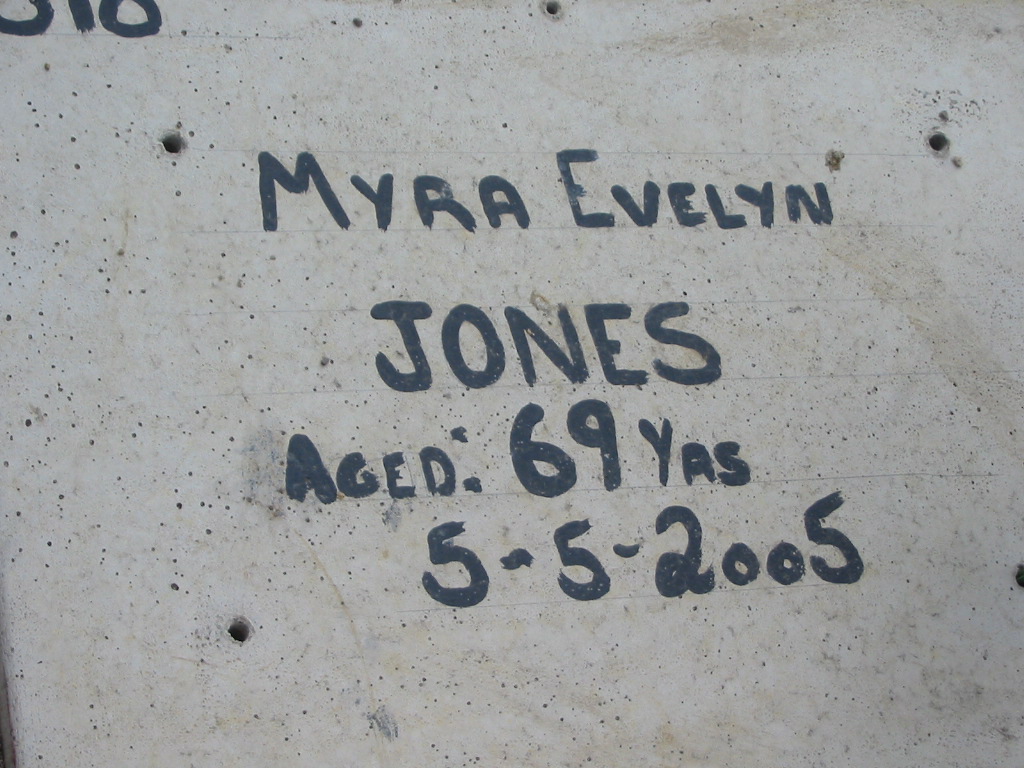 MYRA EVELYN
JONES
AGED: 69 YRS
5-5-2005